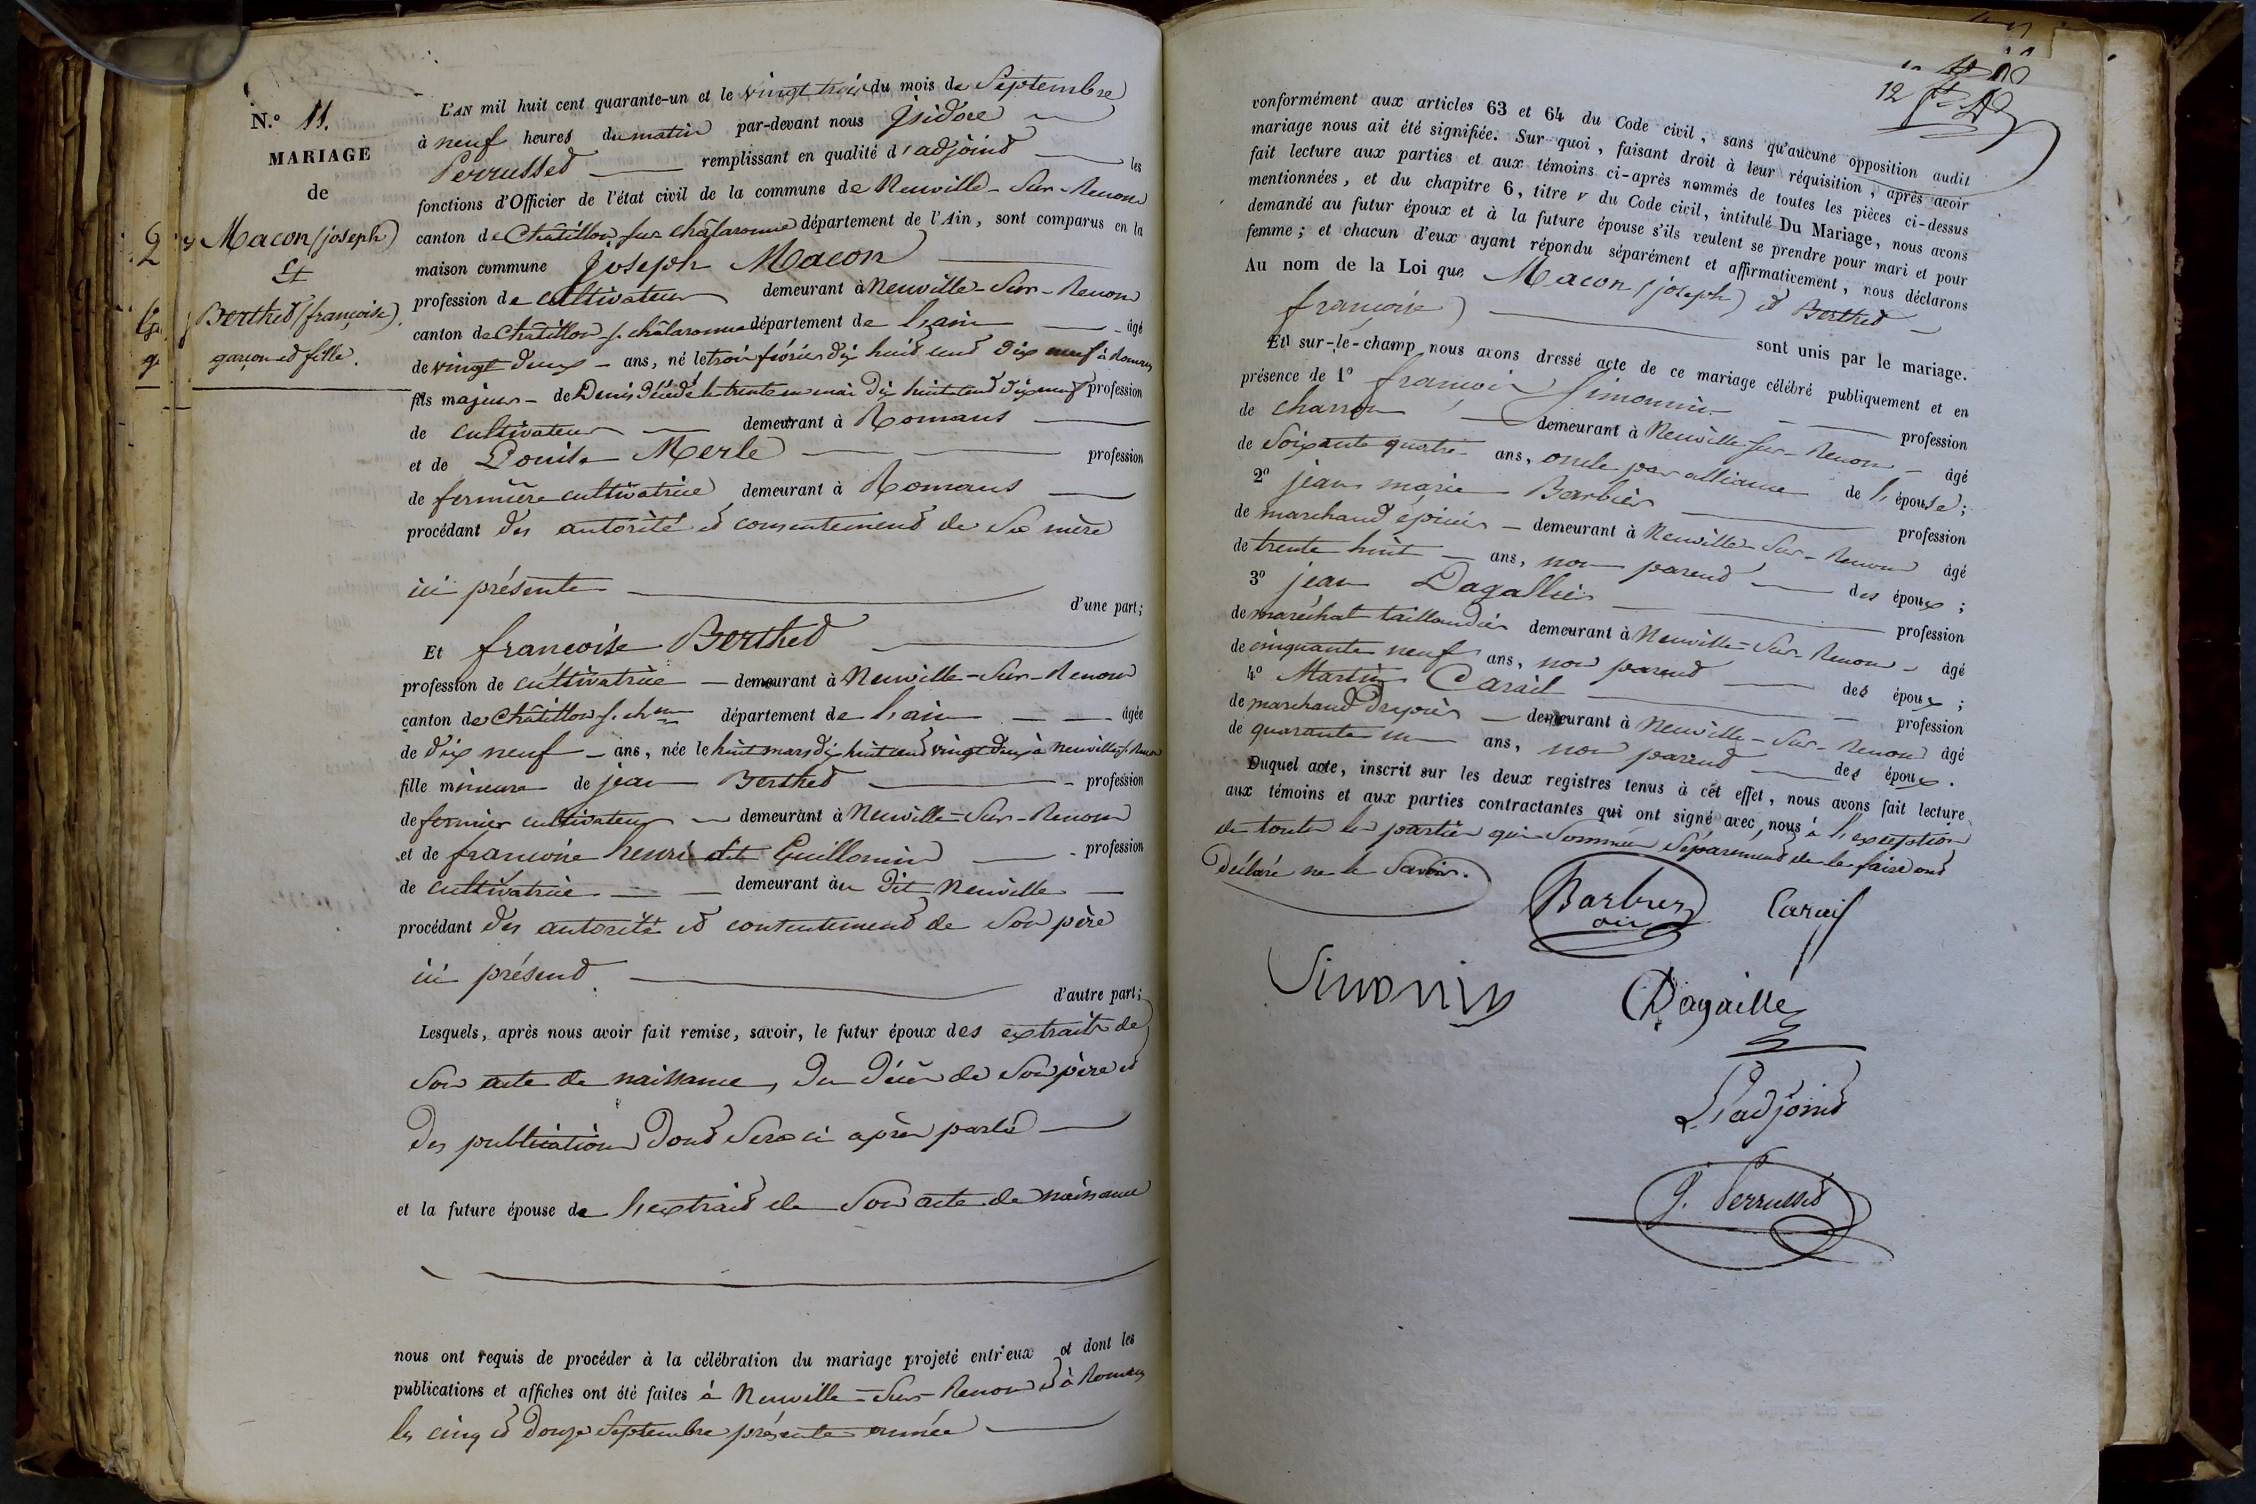 N.º 11.
MARIAGE
de
Macon (joseph)
Et
Berthet (françoise)
garçon et fille.
L'AN mil huit cent quarante-un et le vingt trois du mois de Septembre
à neuf heures du matin par-devant nous Isidore
Perrusset remplissant en qualité d'adjoint les
fonctions d'Officier de l'état civil de la commune de Neuville-Sur-Renom
canton de Châtillon sur châlaronne département de l'Ain, sont comparus en la
maison commune Joseph Macon
profession de cultivateur demeurant à Neuville-Sur-Renom
canton de Châtillon s. châlaronne département de l'ain âgé
de vingt deux ans, né le trois février dix huit cent dix neuf à Romans
fils majeur de Denis décédé le trente un mai dix huit cent dix neuf profession
de cultivateur demeurant à Romans
et de Louise Merle profession
de fermière cultivatrice demeurant à Romans
procédant des autorité et consentement de Sa mère
ici présente
d'une part;
Et francoise Berthet
profession de cultivatrice demeurant à Neuville-Sur-Renom
canton de Châtillon s. ch.nne département de l'ain âgée
de dix neuf ans, née le huit mars dix huit cent vingt deux à Neuville s. Renom
fille mineure de jean Berthet profession
de fermier cultivateur demeurant à Neuville-Sur-Renom
et de francoise henri dit Guillomin profession
de cultivatrice demeurant au dit Neuville
procédant des autorité et consentement de Son père
ici présent
d'autre part;
Lesquels, après nous avoir fait remise, savoir, le futur époux des extraits de
Son acte de naissance, du décès de Son père et
des publications dont Sera ci après parlé
et la future épouse de l'extrait de Son acte de naissance
nous ont requis de procéder à la célébration du mariage projeté entr'eux et dont les
publications et affiches ont été faites à Neuville-Sur-Renom et à Romans
les cinq et douze Septembre présente année
12
conformément aux articles 63 et 64 du Code civil, sans qu'aucune opposition audit
mariage nous ait été signifiée. Sur quoi, faisant droit à leur réquisition, après avoir
fait lecture aux parties et aux témoins ci-après nommés de toutes les pièces ci-dessus
mentionnées, et du chapitre 6, titre v du Code civil, intitulé Du Mariage, nous avons
demandé au futur époux et à la future épouse s'ils veulent se prendre pour mari et pour
femme; et chacun d'eux ayant répondu séparément et affirmativement, nous déclarons
Au nom de la Loi que Macon (joseph) et Berthet
(françoise)
sont unis par le mariage.
Et sur-le-champ nous avons dressé acte de ce mariage célébré publiquement et en
présence de 1º françois Simonin profession
de charron demeurant à Neuville-Sur-Renom âgé
de Soixante quatre ans, oncle par alliance de l'épouse;
2º jean marie Barbier profession
de marchand épicier demeurant à Neuville-Sur-Renom âgé
de trente huit ans, non parent des époux;
3º jean Dagallier profession
de maréchal taillandier demeurant à Neuville-Sur-Renom âgé
de cinquante neuf ans, non parent des époux;
4º Martin Carail profession
de marchand drapier demeurant à Neuville-Sur-Renom âgé
de quarante un ans, non parent des époux.
Duquel acte, inscrit sur les deux registres tenus à cet effet, nous avons fait lecture
aux témoins et aux parties contractantes qui ont signé avec nous à l'exception
de toutes les parties qui Sommées Séparément de le faire ont
déclaré ne le Savoir.
Barbier
Simonin
Dagaille
L'adjoint
J. Perrusset